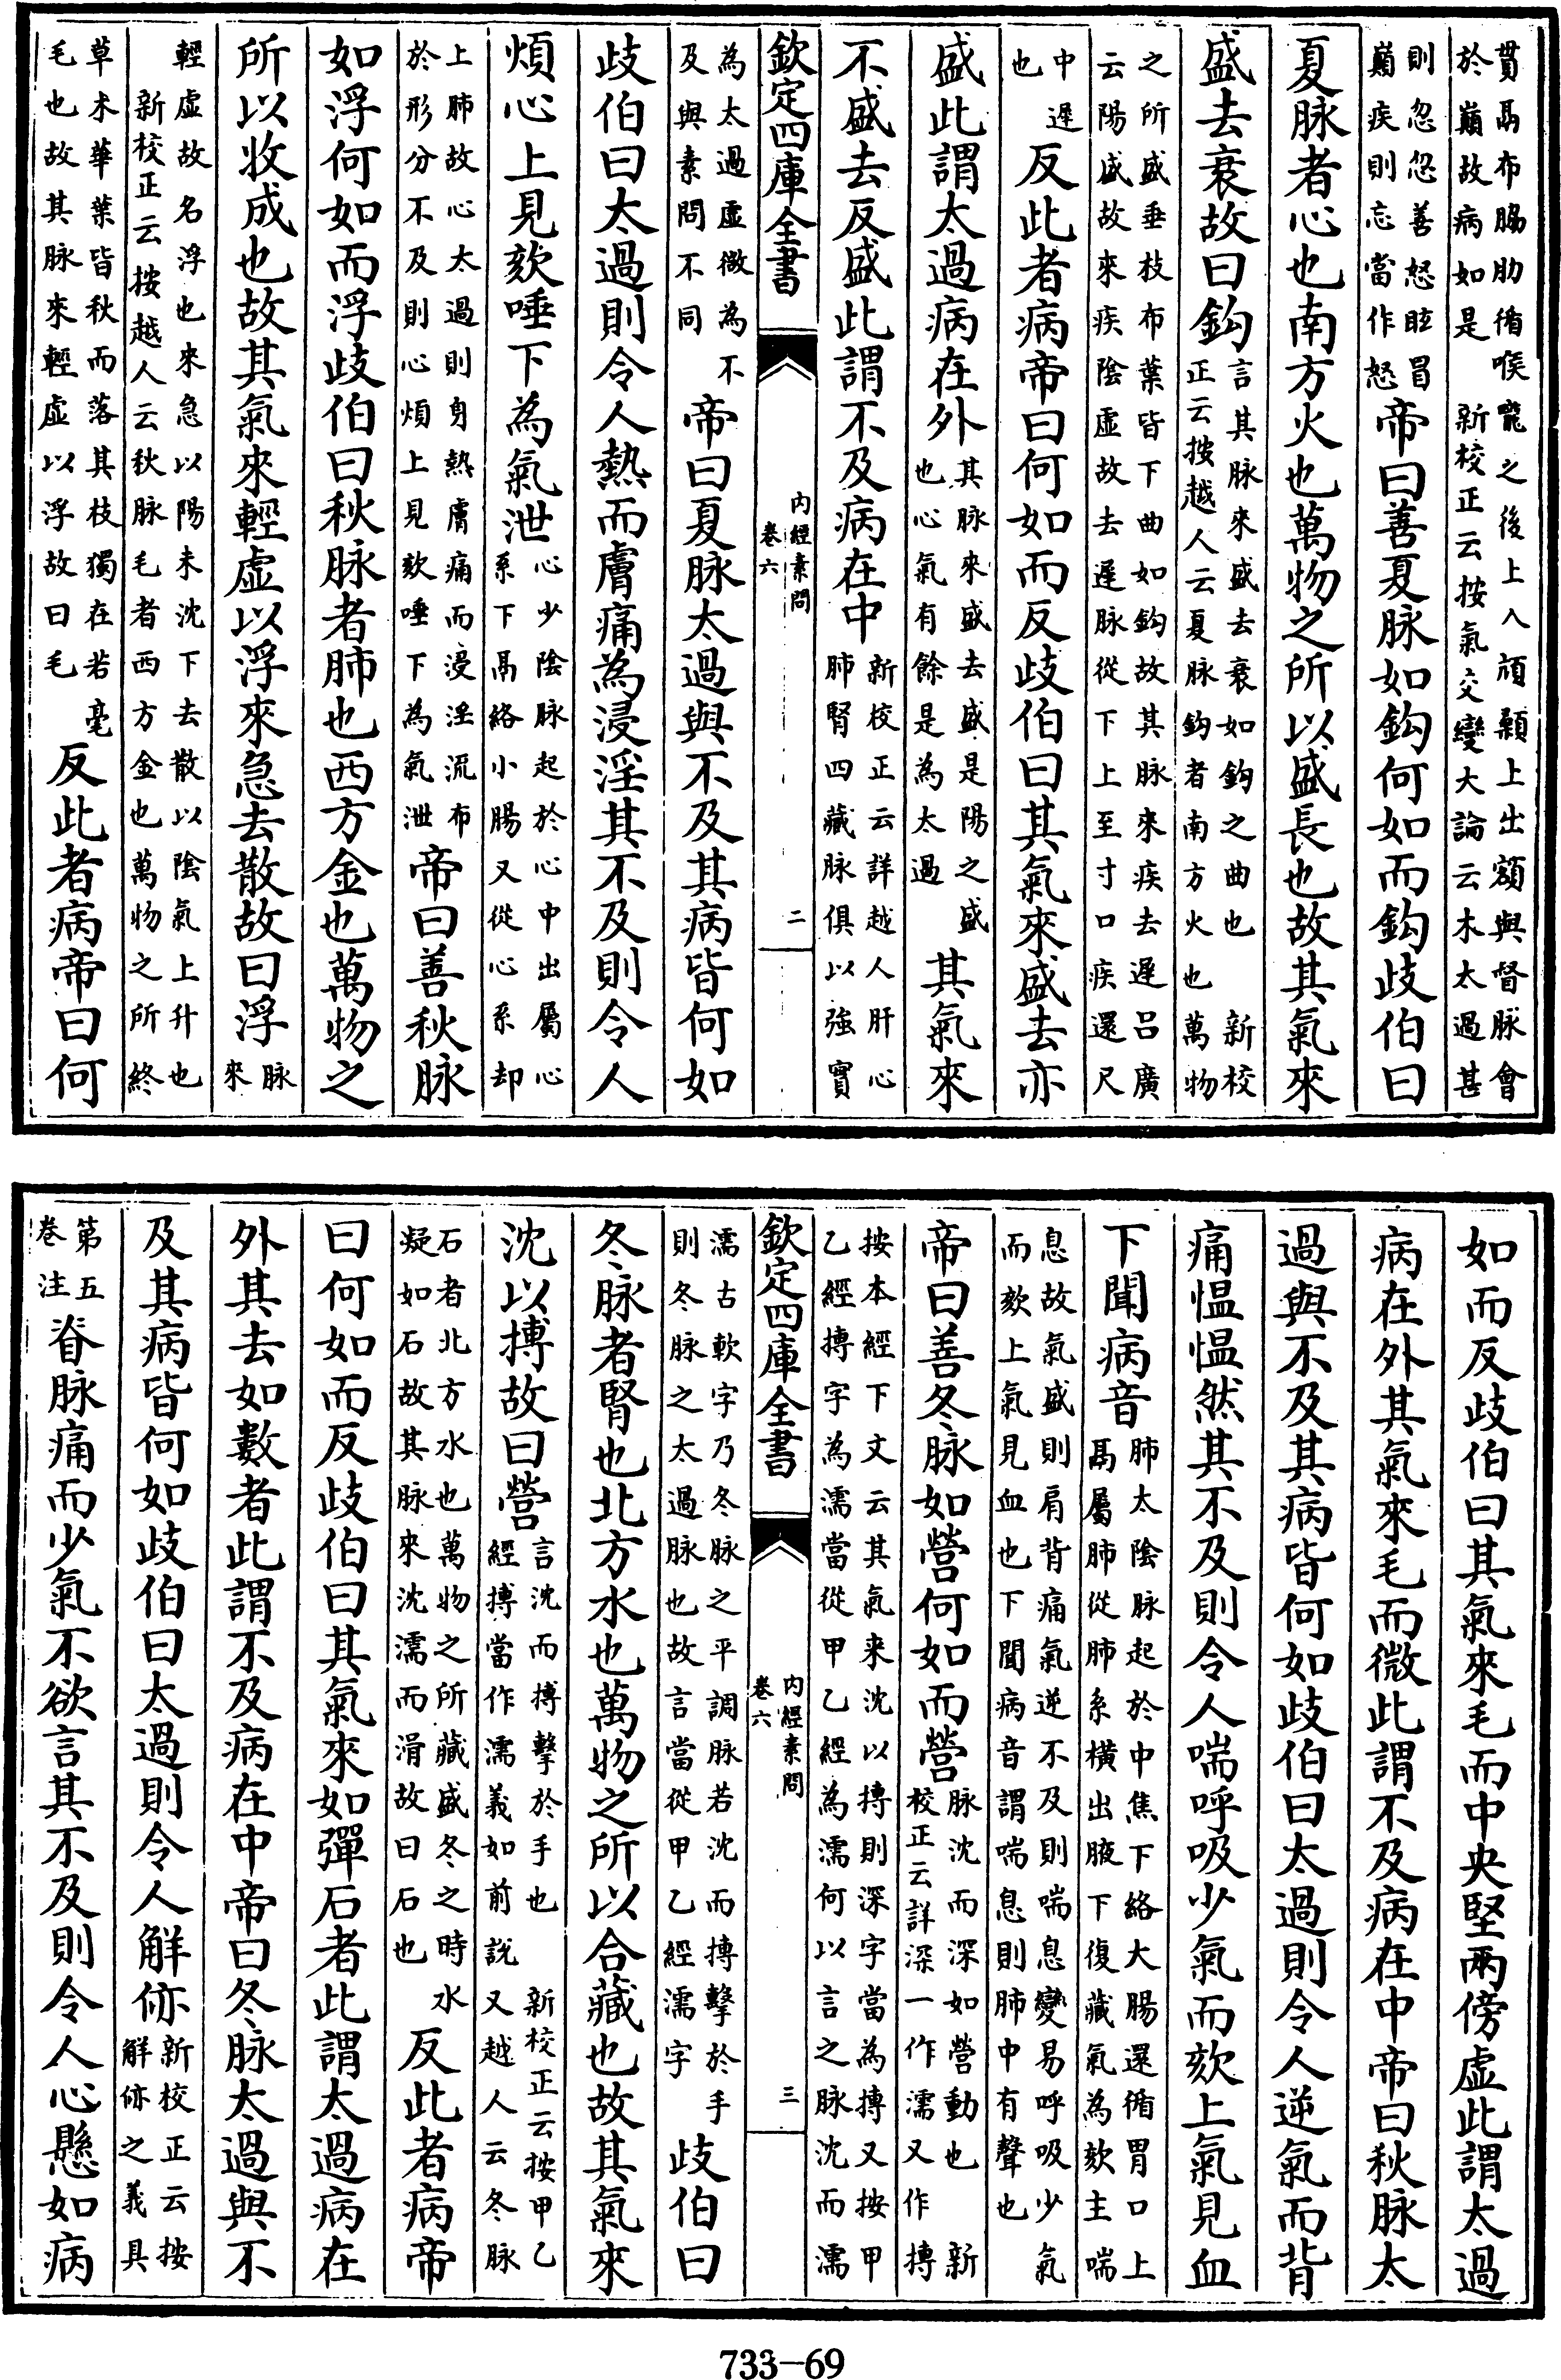 貫鬲布脇肋循喉嚨之後上入頏顙上出額與督脉會於巔故病如是 新校正云按氣交變大論云木太過甚
則忽忽善怒眩冒巔疾則忘當作怒帝曰善夏脉如鈎何如而鈎歧伯曰
夏脉者心也南方火也萬物之所以盛長也故其氣來
盛去衰故曰鈎言其脉來盛去衰如鈎之曲也 新校正云按越人云夏脉鈎者南方火也萬物
之所盛垂枝布葉皆下曲如鈎故其脉來疾去遲呂廣云陽盛故來疾陰虛故去遲脉從下上至寸口疾還尺
中遲也反此者病帝曰何如而反歧伯曰其氣來盛去亦
盛此謂太過病在外其脉來盛去盛是陽之盛也心氣有餘是為太過其氣來
不盛去反盛此謂不及病在中新校正云詳越人肝心肺腎四藏脉俱以強實
欽定四庫全書 內經素問 卷六 二
為太過虛微為不及與素問不同帝曰夏脉太過與不及其病皆何如
歧伯曰太過則令人熱而膚痛為浸淫其不及則令人
煩心上見欬唾下為氣泄心少陰脉起於心中出屬心系下鬲絡小腸又從心系却
上肺故心太過則身熱膚痛而浸淫流布於形分不及則心煩上見欬唾下為氣泄帝曰善秋脉
如浮何如而浮歧伯曰秋脉者肺也西方金也萬物之
所以收成也故其氣來輕虛以浮來急去散故曰浮脉來
輕虛故名浮也來急以陽未沈下去散以陰氣上升也 新校正云按越人云秋脉毛者西方金也萬物之所終
草木華葉皆秋而落其枝獨在若毫毛也故其脉來輕虛以浮故曰毛反此者病帝曰何
如而反歧伯曰其氣來毛而中央堅兩傍虛此謂太過
病在外其氣來毛而微此謂不及病在中帝曰秋脉太
過與不及其病皆何如歧伯曰太過則令人逆氣而背
痛愠愠然其不及則令人喘呼吸少氣而欬上氣見血
下聞病音肺太陰脉起於中焦下絡大腸還循胃口上鬲屬肺從肺系橫出腋下復藏氣為欬主喘
息故氣盛則肩背痛氣逆不及則喘息變易呼吸少氣而欬上氣見血也下聞病音謂喘息則肺中有聲也
帝曰善冬脉如營何如而營脉沈而深如營動也 新校正云詳深一作濡又作搏
按本經下文云其氣来沈以搏則深字當為搏又按甲乙經搏字為濡當從甲乙經為濡何以言之脉沈而濡
欽定四庫全書 內經素問 卷六 三
濡古軟字乃冬脉之平調脉若沈而搏擊於手則冬脉之太過脉也故言當從甲乙經濡字歧伯曰
冬脉者腎也北方水也萬物之所以合藏也故其氣來
沈以搏故曰營言沈而搏擊於手也 新校正云按甲乙經搏當作濡義如前說又越人云冬脉
石者北方水也萬物之所藏盛冬之時水凝如石故其脉來沈濡而滑故曰石也反此者病帝
曰何如而反歧伯曰其氣來如彈石者此謂太過病在
外其去如數者此謂不及病在中帝曰冬脉太過與不
及其病皆何如歧伯曰太過則令人解㑊新校正云按解㑊之義具
第五卷注脊脉痛而少氣不欲言其不及則令人心懸如病
733-69